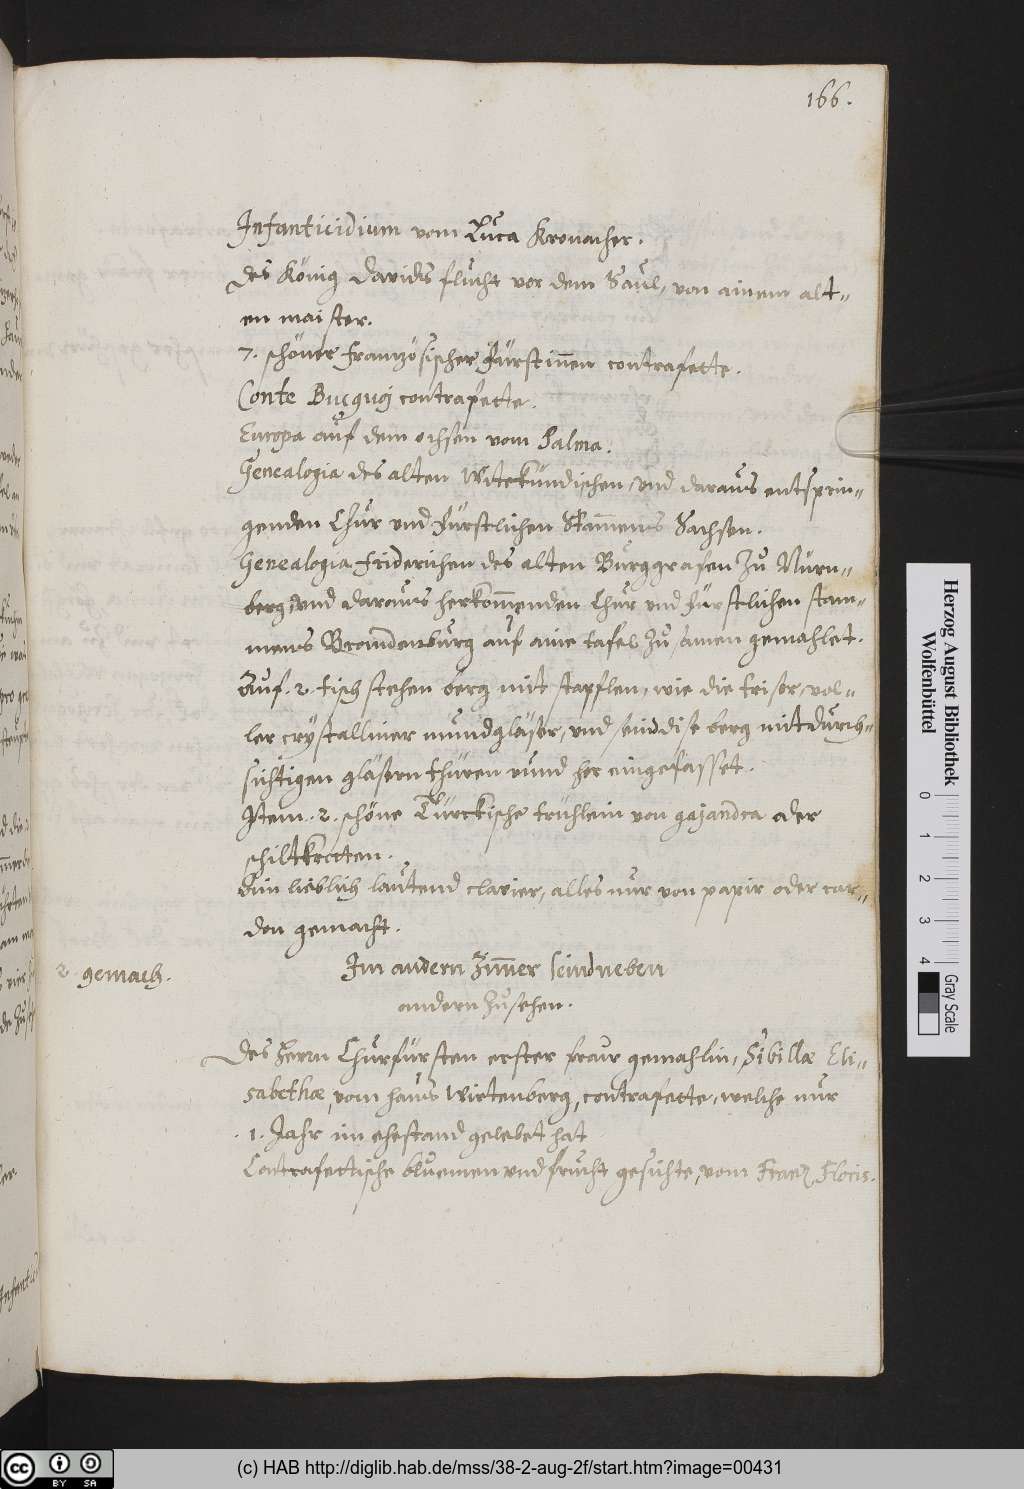 166.
Infanticidium vom Luca Kronacher.
Des König Davids flucht vor dem Saul, von ainem alt„
en maister.
7. schöner französischer Fürstiñen contrafette.
Conte Bucquoj contrafette.
Europa auf dem ochsen vom Palma.
Genealogia des alten Witekündischen, und daraus entsprin„
genden Chur und Fürstlichen Stam̃ens Sachsen.
Genealogia Friderichen des alten Burggrafen zu Nürn„
berg, und daraus herkom̃enden Chur und Fürstlichen stam„
mens Brandenburg auf aine tafel zusamen gemahlet.
Auf. 2. tisch stehen berg mit stapflen, wie die trisor, vol„
ler crystalliner mundgläser, und seind dise berg mit durch„
sichtigen gläsern thüren rund her eingefasset.
Item. 2. schöne Türckische trühlein von gajandra oder
schiltkroten.
Ain lieblich lautend clavier, alles nur von papir oder car„
don gemacht.
2. gemach.
Im andern Zim̃er seind neben
andern zusehen.
Des Herrn Churfürsten erster fraur gemahlin, Sibillæ Eli„
sabethæ, vom haus Wirtenberg, contrafette, welche nur
1. Jahr im ehestand gelebet hat
Contrafettische bluemen und frucht gesichte, vom Franz Floris.
Herzog August Bibliothek
Wolfenbüttel
0 1 2 3 4
Gray Scale
BY SA
(c) HAB http://diglib.hab.de/mss/38-2-aug-2f/start.htm?image=00431